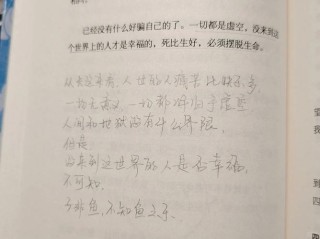 已经没有什么好骗自己的了。一切都是虚空，没来到这
个世界上的人才是幸福的，死比生好，必须摆脱生命。
人世的人痛苦比快乐多
一切无意义，一切都终归于虚空
人间和地狱没有什么界限，
但是
没来到这世界的人是否幸福，
不可知，
子非鱼，不知鱼之乐。